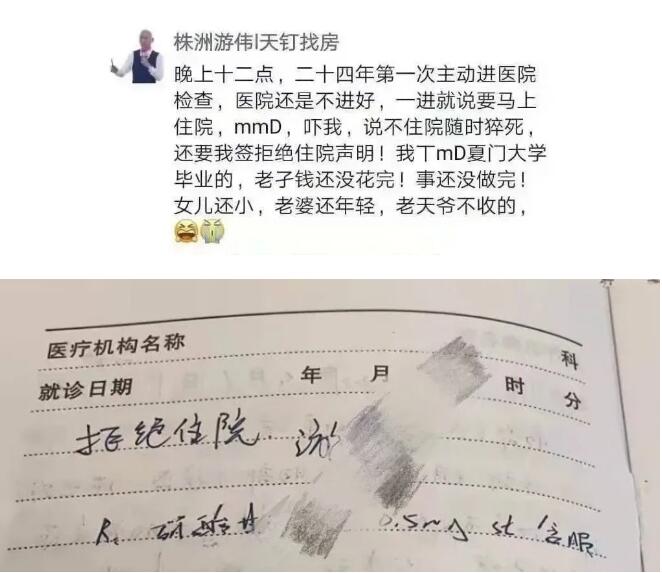 株洲游伟|天钉找房
晚上十二点，二十四年第一次主动进医院
检查，医院还是不进好，一进就说要马上
住院，mmD，吓我，说不住院随时猝死，
还要我签拒绝住院声明！我丅mD夏门大学
毕业的，老孑钱还没花完！事还没做完！
女儿还小，老婆还年轻，老天爷不收的，
医疗机构名称
科
就诊日期 年 月 时 分
拒绝住院. 游
R: 硝酸甘 0.5mg st 含服